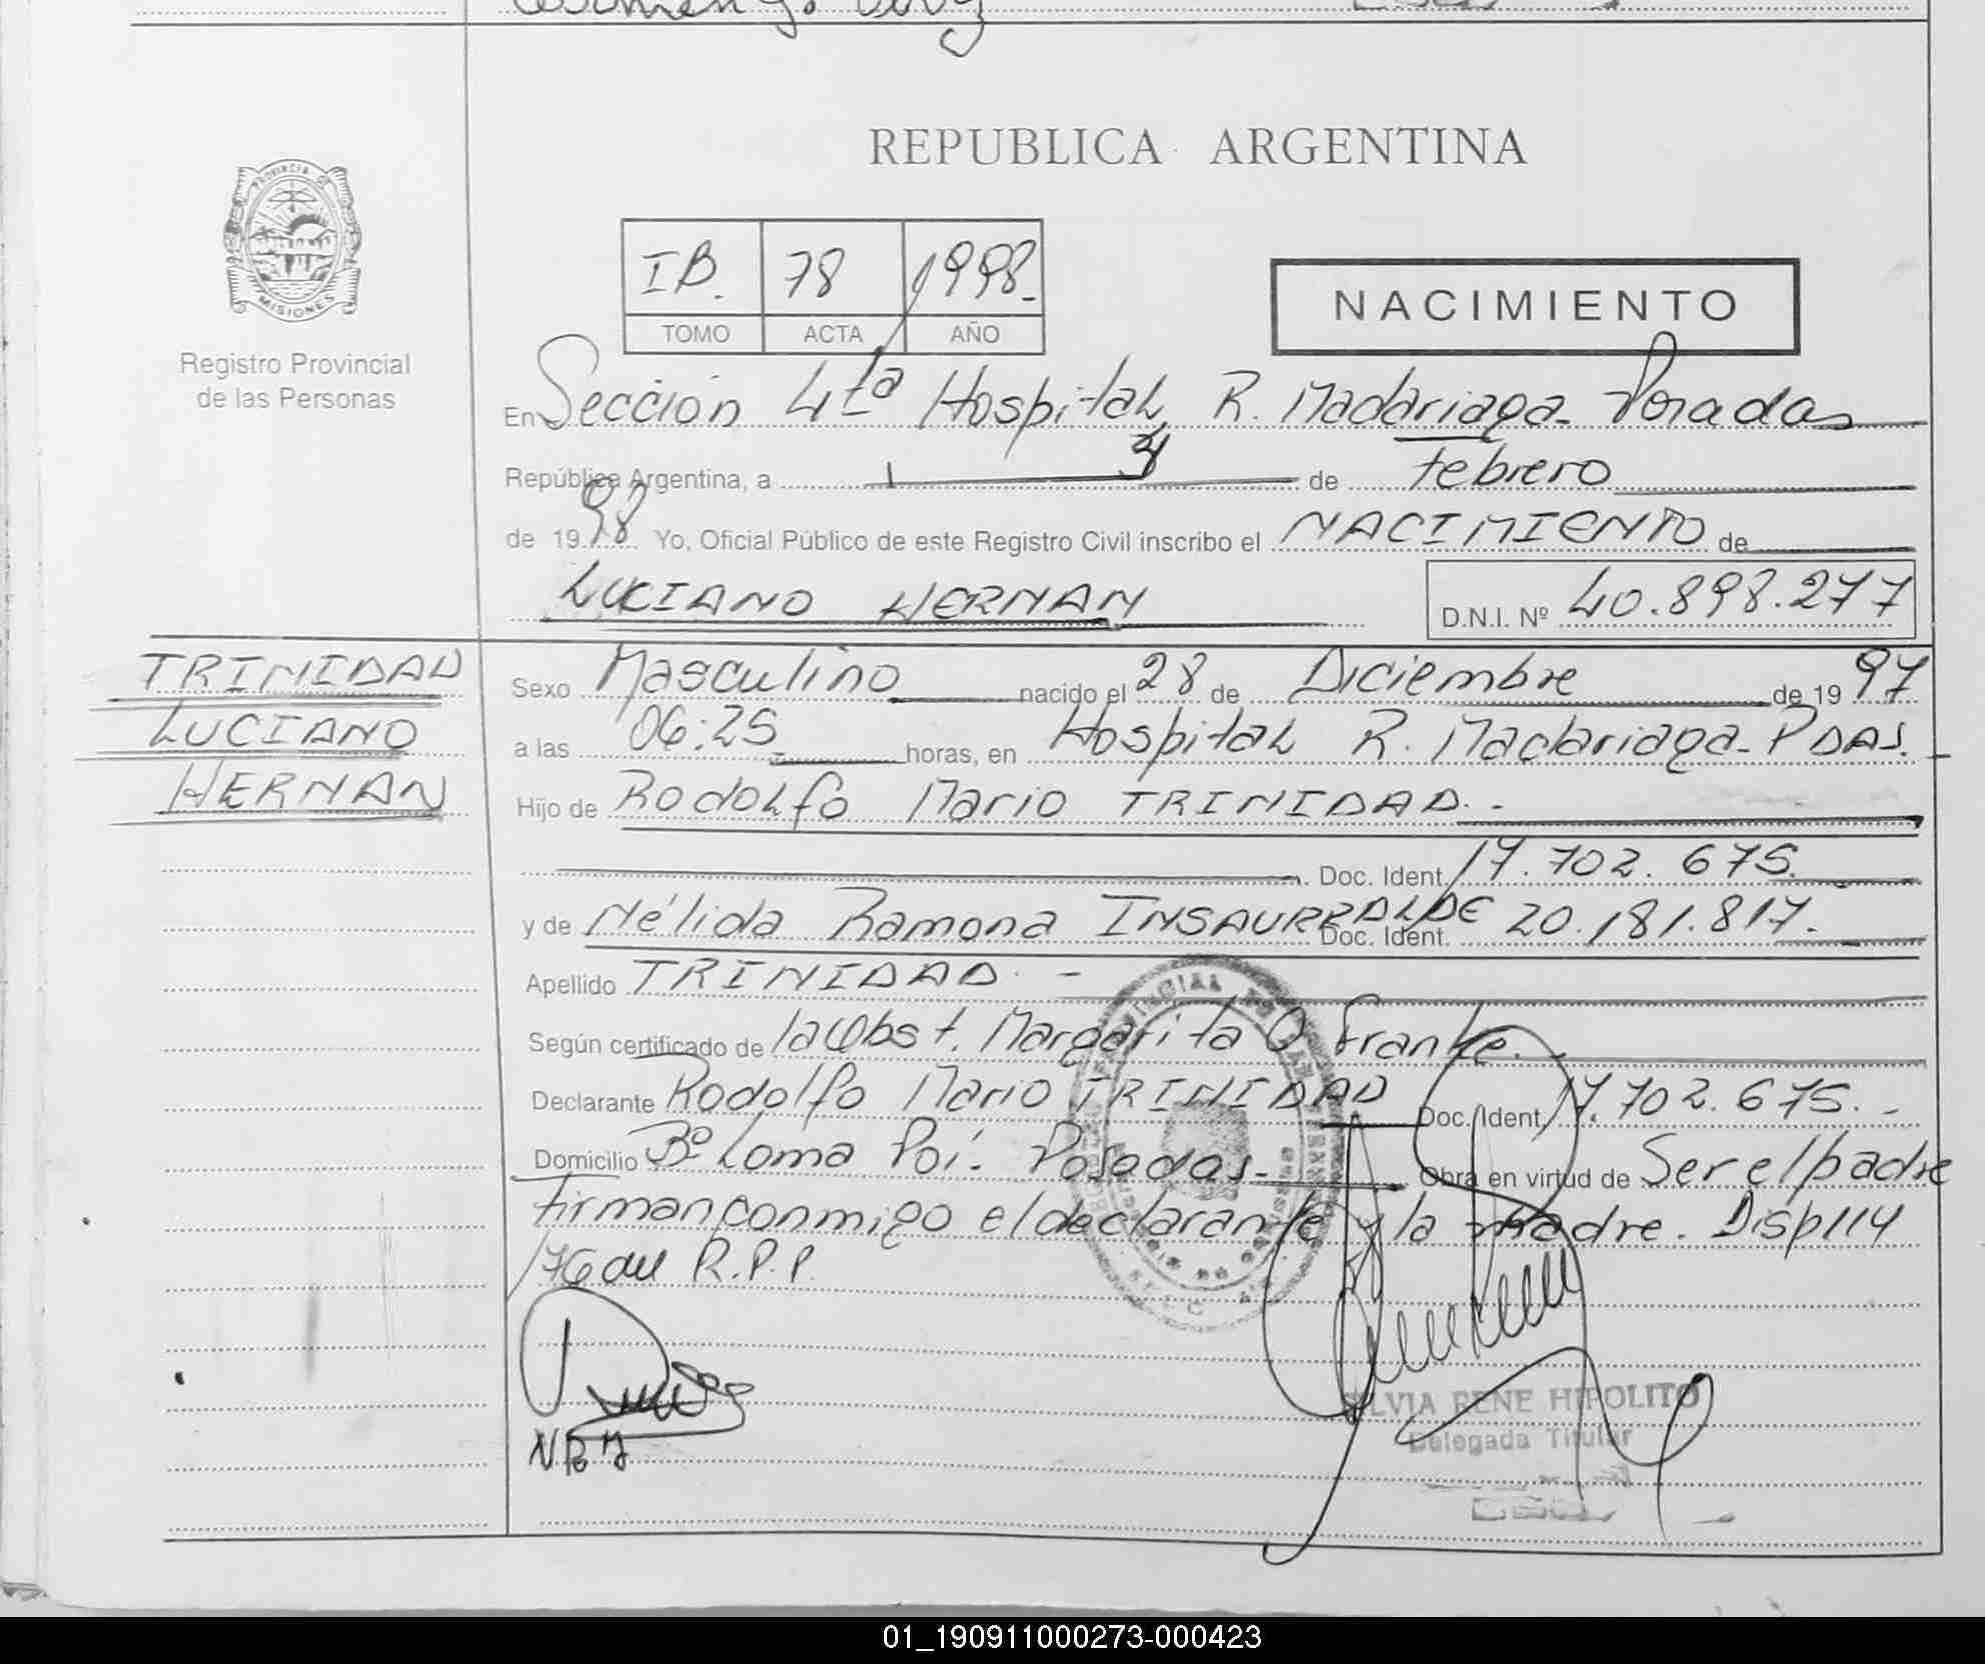 REPUBLICA ARGENTINA
PROVINCIA DE
MISIONES
Registro Provincial
de las Personas
IB. 78 1998.
TOMO ACTA AÑO
NACIMIENTO
En Sección 4ta Hospital R. Madariaga - Posadas
República Argentina, a de febrero
de 1998 Yo, Oficial Público de este Registro Civil inscribo el NACIMIENTO de
LUCIANO HERNAN D.N.I. Nº 40.898.277
TRINIDAD
LUCIANO
HERNAN
Sexo Masculino nacido el 28 de Diciembre de 1997
a las 06:25 horas, en Hospital R. Madariaga - PDAS.
Hijo de Rodolfo Mario TRINIDAD. -
Doc. Ident. 17.702.675.
y de Nélida Ramona INSAURRALDE Doc. Ident. 20.181.817.
Apellido TRINIDAD. -
Según certificado de Margarita O Franke. -
Declarante Rodolfo Mario TRINIDAD Doc. Ident. 17.702.675. -
Domicilio Bº Loma Poí. Posadas - Obra en virtud de Ser el padre
firman conmigo el declarante y la madre. Disp 114
/76 del R.P.P.
SILVIA RENE HIPOLITO
Delegada Titular
01_190911000273-000423